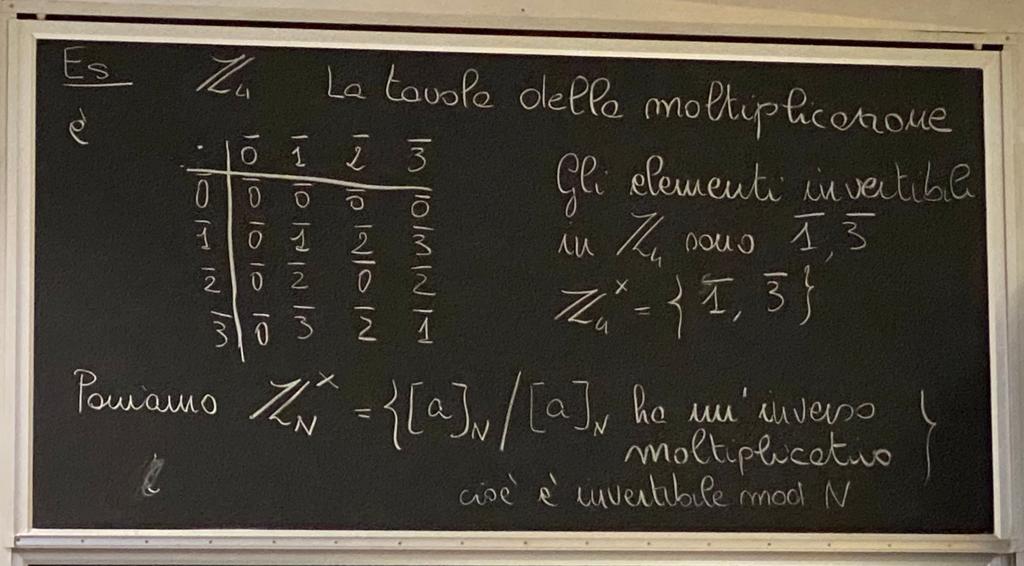 Es ℤ₄ La tavola della moltiplicazione
è
· | 0̄ 1̄ 2̄ 3̄
0̄ | 0̄ 0̄ 0̄ 0̄
1̄ | 0̄ 1̄ 2̄ 3̄
2̄ | 0̄ 2̄ 0̄ 2̄
3̄ | 0̄ 3̄ 2̄ 1̄
Gli elementi invertibili
in ℤ₄ sono 1̄, 3̄
ℤ₄ˣ = { 1̄, 3̄ }
Poniamo ℤ_Nˣ = { [a]_N / [a]_N ha un'inverso
moltiplicativo }
cioè è invertibile mod N